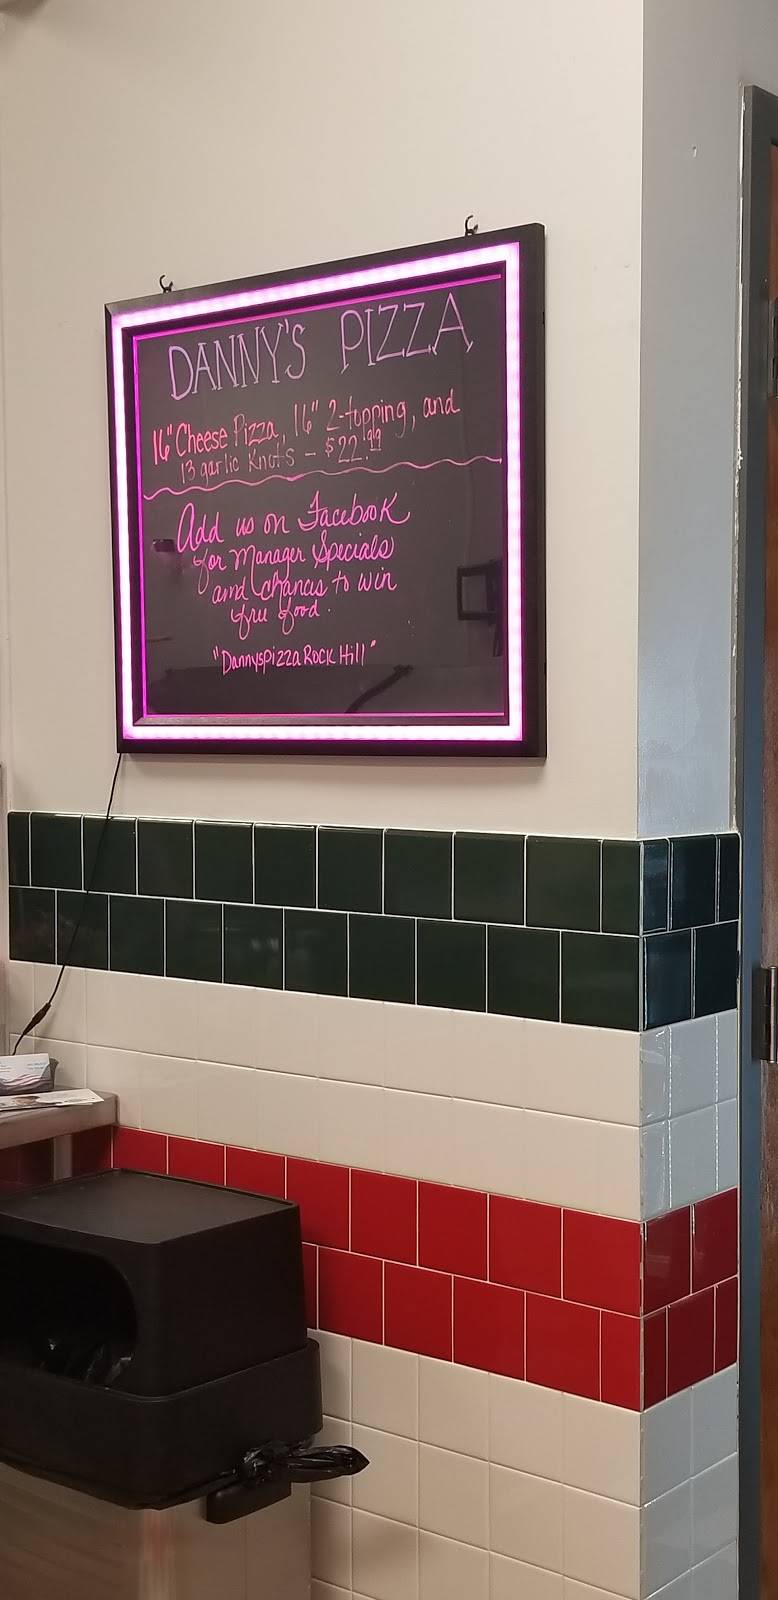 DANNY'S PIZZA
16" Cheese Pizza, 16" 2-topping, and
13 garlic Knots - $22.99
Add us on Facebook
for Manager Specials
and chances to win
free food.
"DannyspizzaRock Hill"